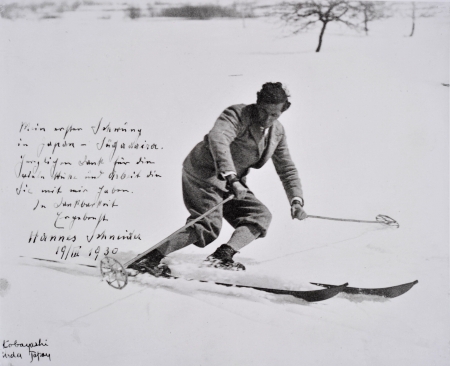 Mein erster Schwung
in Japan – Sugadaira.
Herzlichen Dank für die
viele Mühe und Arbeit die
Sie mit mir haben.
In Dankbarkeit
Ergebenst
Hannes Schneider
19/III 1930
Kobayashi
Japan